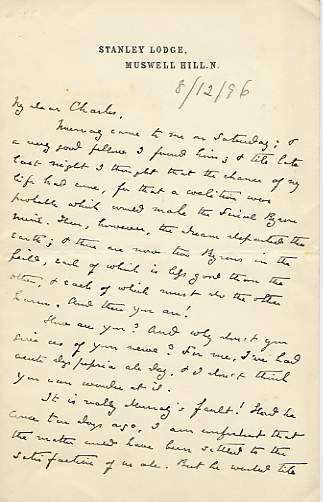 STANLEY LODGE,
MUSWELL HILL. N.
8/12/96
My dear Charles,
Murray came to me on Saturday; &
a very good fellow I found him; & till late
last night I thought that the chance of my
life had come, for that a coalition was
probable which would make the Byron
Then, however, the dream departed the
earth; & there are now two Byrons in the
field, each of which is less good than the
other, & each of which must do the other
harm. And there you are!
How are you? And why don't you
give us of your news? For me, I've had
acute dyspepsia all day, & I don't think
you can wonder at it.
It is really Murray's fault! Had he
come ten days ago, I am confident that
the matter could have been settled to the
satisfaction of us all. But he waited till